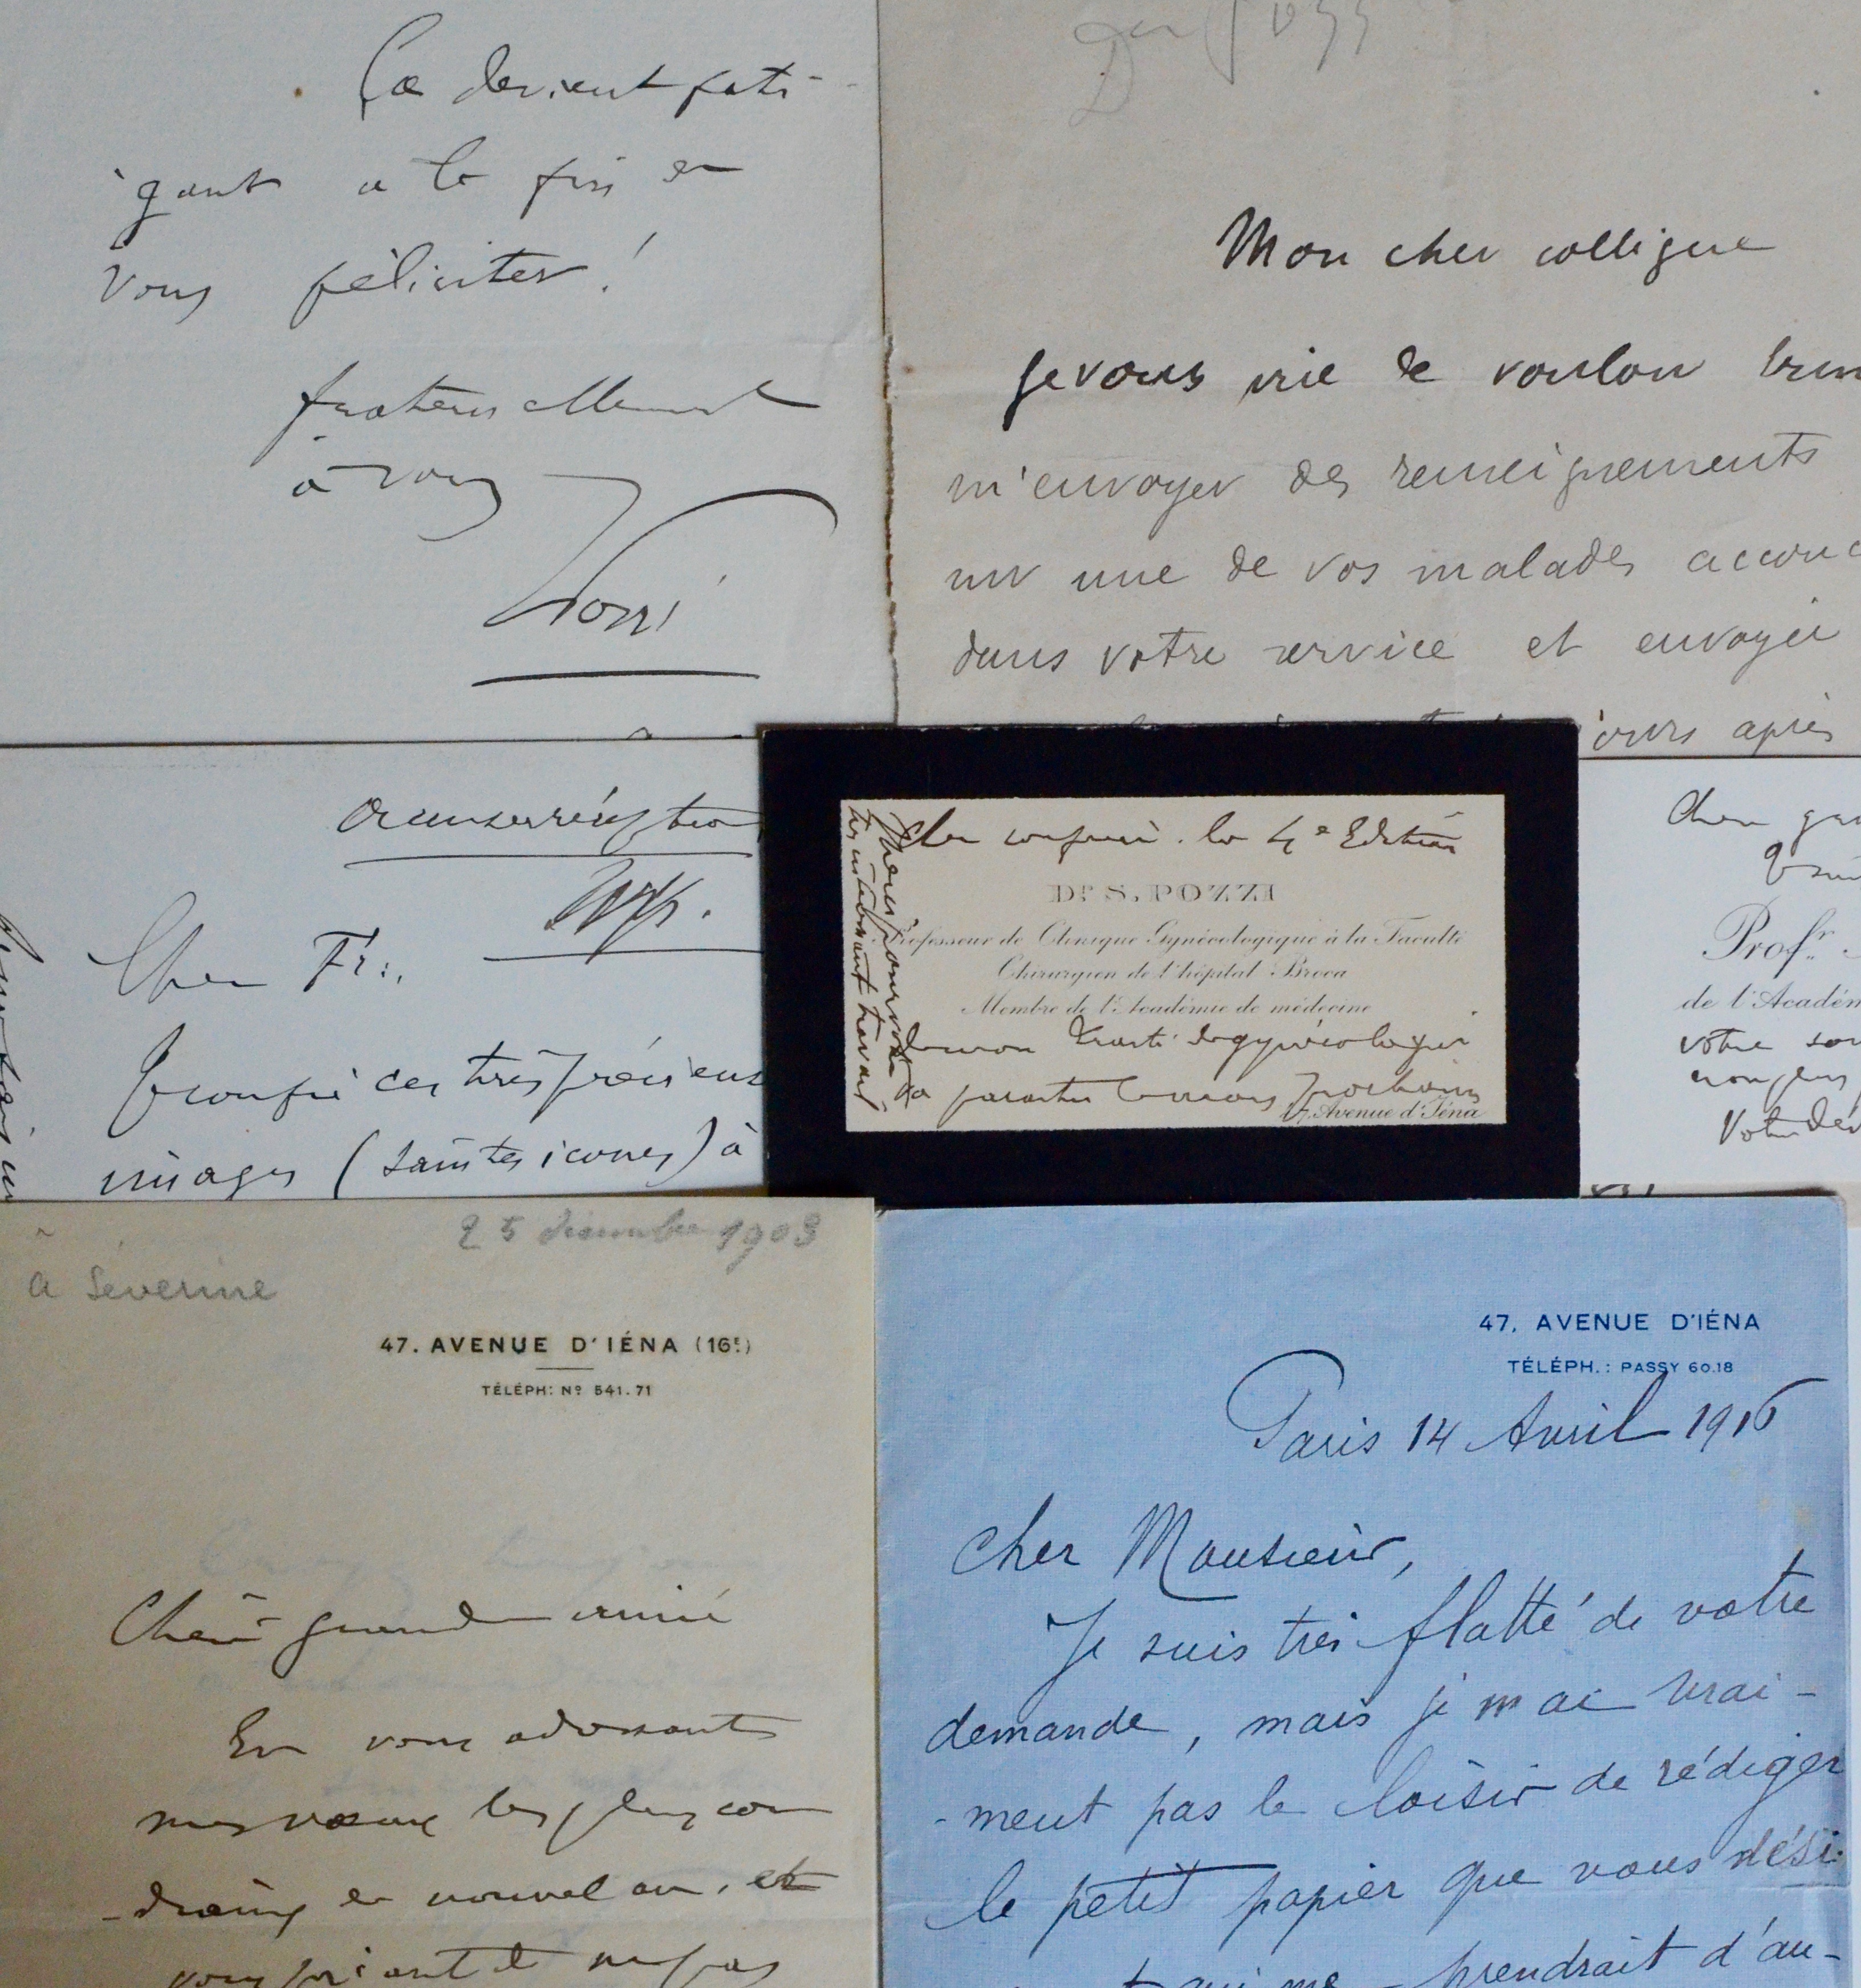 Ça devient fati-
gant à la fin de
vous féliciter !
fraternellement
à vous
Pozzi
Mon cher collègue
je vous prie de vouloir
m'envoyer des renseignements
sur une de vos malades
dans votre service et envoyée
jours après
Cher Fr∴
Je confie ces très précieuses
images (saintes icones) à
Cher confrère. la 4e Edition
DR S. POZZI
Professeur de Clinique Gynécologique à la Faculté
Chirurgien de l'hôpital Broca
Membre de l'Académie de médecine
de mon Traité de gynécologie
va paraître le mois prochain
47, Avenue d'Iéna
Merci pour votre
très intéressant travail
Profr.
de l'Acadé
votre
Votre
25 décembre 1903
à Séverine
47. AVENUE D'IÉNA (16E)
TÉLÉPH: No 541.71
Chère grande amie
En vous adressant
mes vœux les plus cor
-diaux de nouvel an, et
vous priant de ne pas
47, AVENUE D'IÉNA
TÉLÉPH. : PASSY 60.18
Paris 14 Avril 1916
Cher Monsieur,
Je suis très flatté de votre
demande, mais je n'ai vrai-
-ment pas le loisir de rédiger
le petit papier que vous dési-
qui me prendrait d'au-